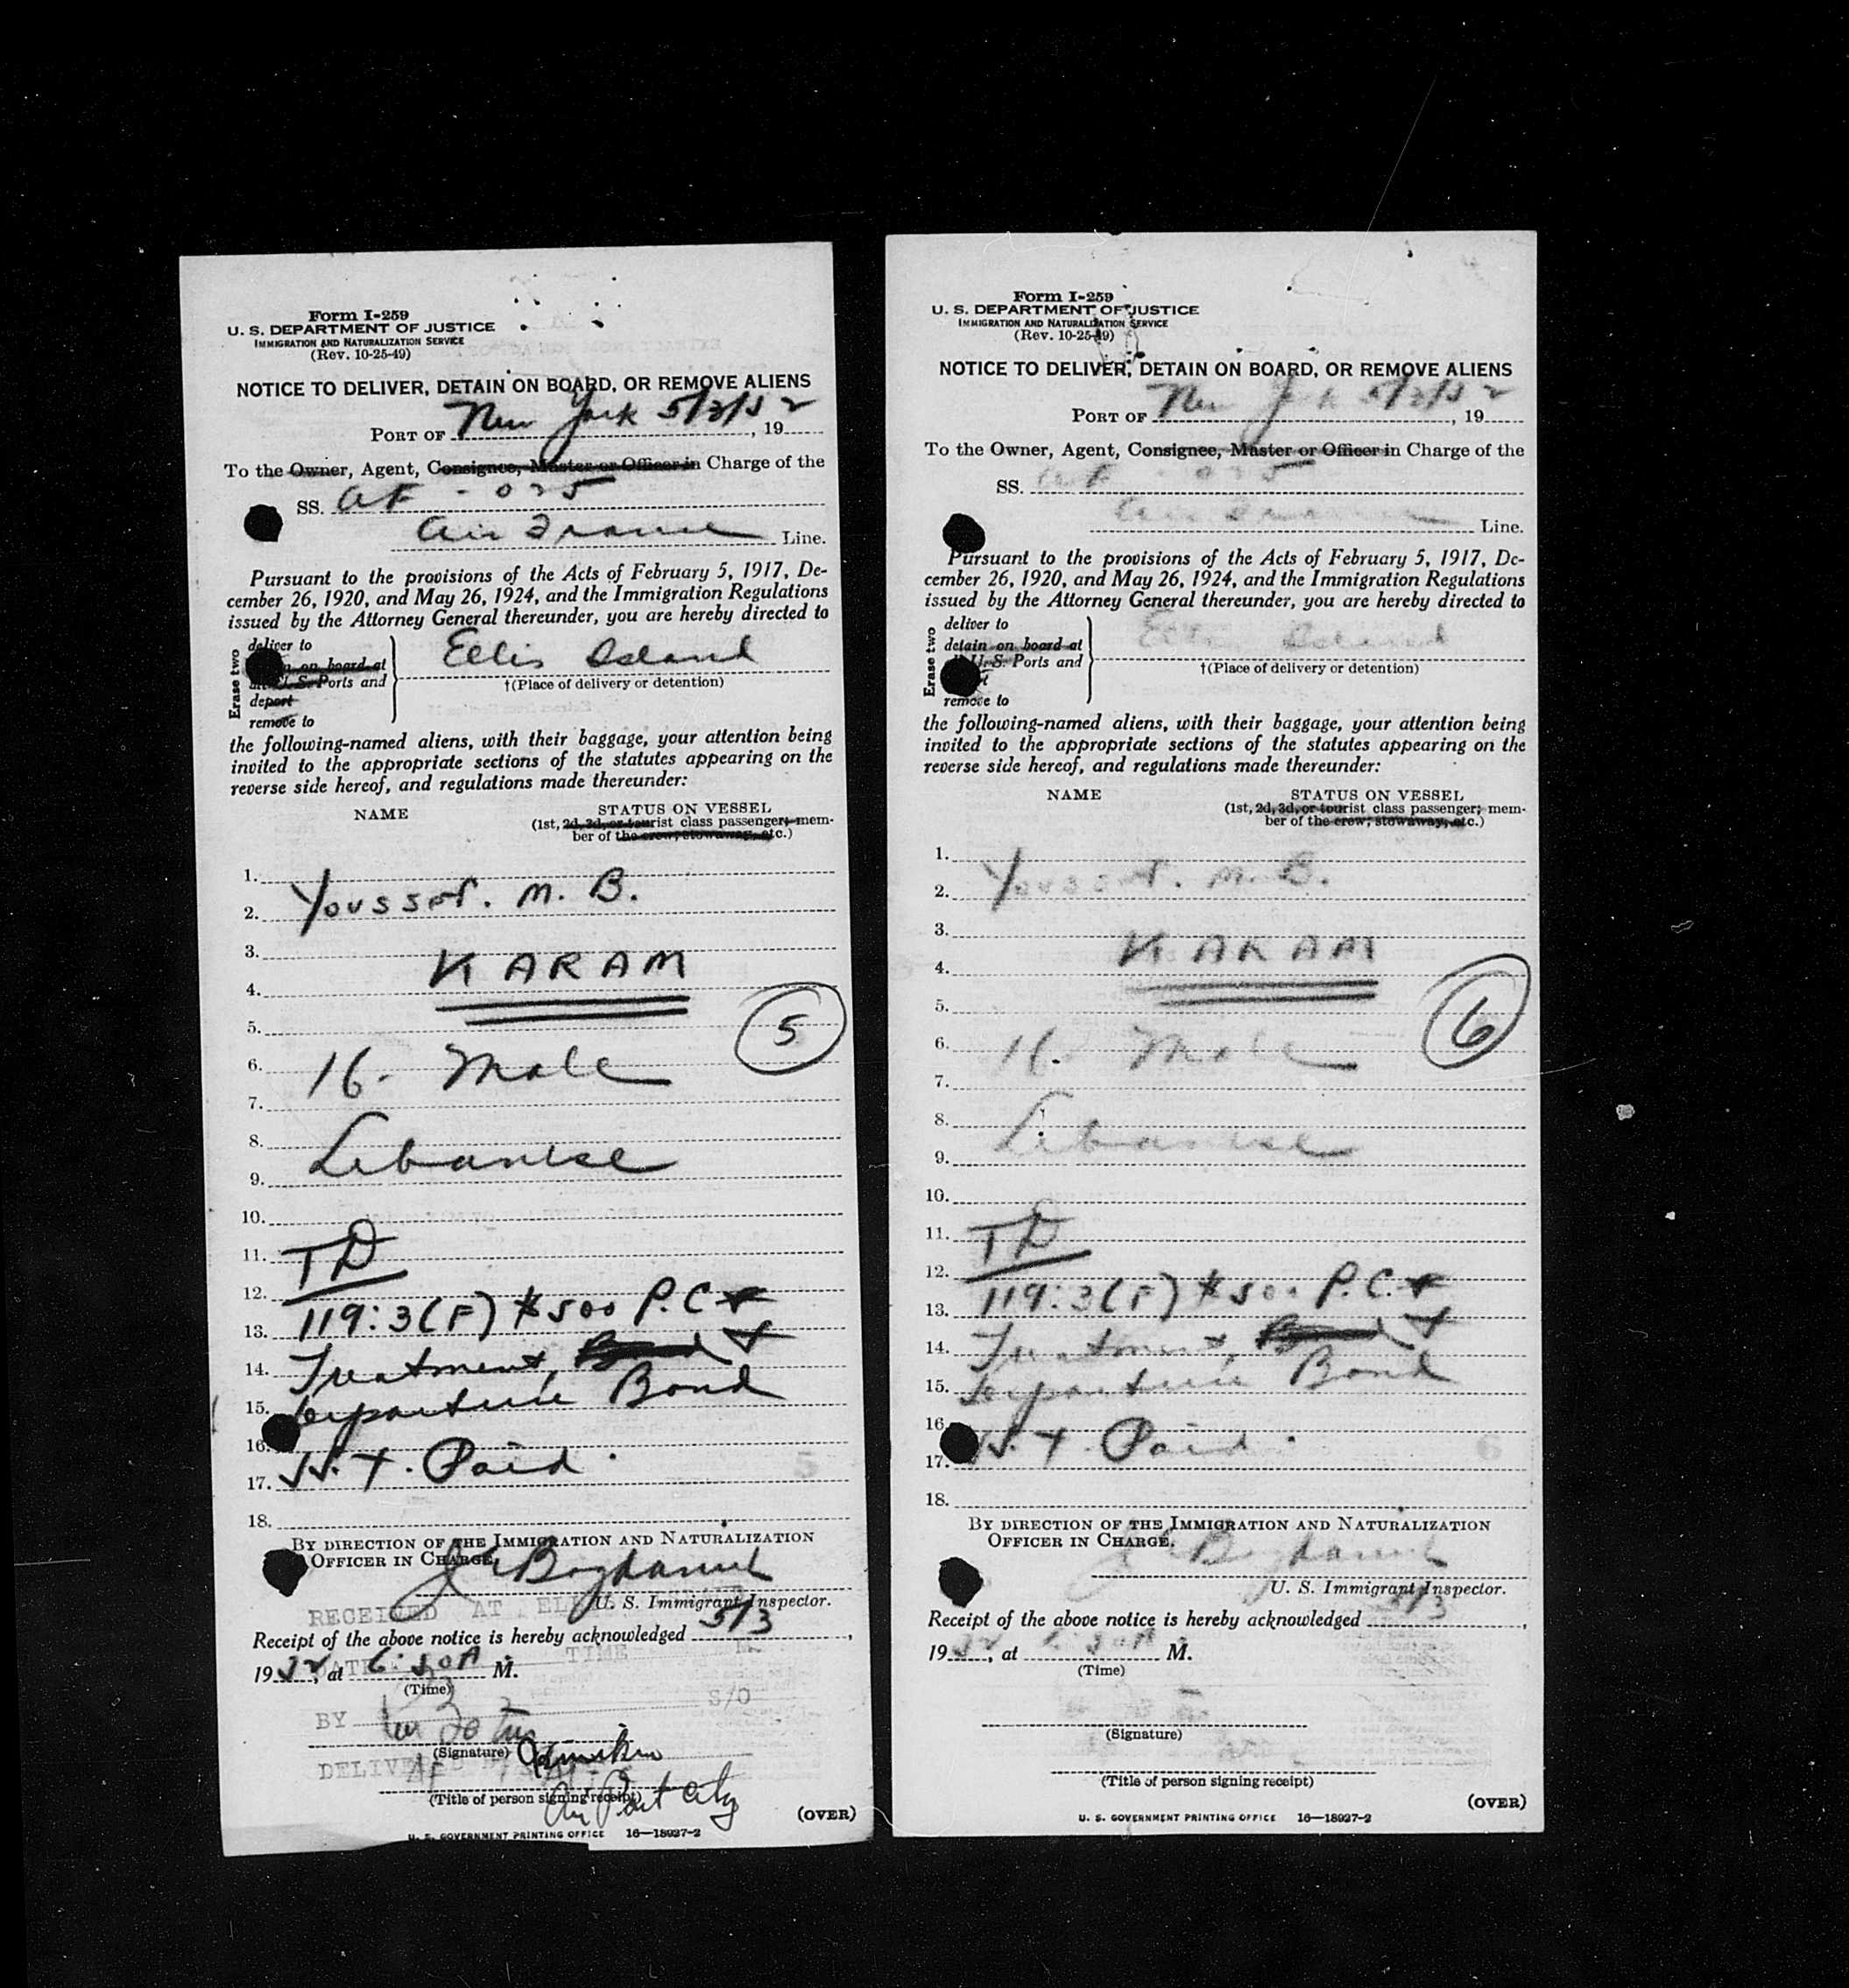 Form I-259
U. S. DEPARTMENT OF JUSTICE
IMMIGRATION AND NATURALIZATION SERVICE
(Rev. 10-25-49)
NOTICE TO DELIVER, DETAIN ON BOARD, OR REMOVE ALIENS
PORT OF New York 5/3/52, 19
To the Owner, Agent, Consignee, Master or Officer in Charge of the
SS. AF - 035
Air France Line.
Pursuant to the provisions of the Acts of February 5, 1917, De-
cember 26, 1920, and May 26, 1924, and the Immigration Regulations
issued by the Attorney General thereunder, you are hereby directed to
Erase two
deliver to
on board at
U. S. Ports and
deport
remove to
Ellis Island
†(Place of delivery or detention)
the following-named aliens, with their baggage, your attention being
invited to the appropriate sections of the statutes appearing on the
reverse side hereof, and regulations made thereunder:
NAME STATUS ON VESSEL
(1st, 2d, 3d, or tourist class passenger; mem-
ber of the crew; stowaway, etc.)
1.
2. Youssef. M. B.
3.
4. KARAM
5. 5
6. 16. Male
7.
8.
9. Lebanese
10.
11. TD
12.
13. 119:3(F) $500 P.C. +
14. Treatment, Bond +
15. Departure Bond
16.
17. H.T. Paid.
18.
BY DIRECTION OF THE IMMIGRATION AND NATURALIZATION
OFFICER IN CHARGE.
U. S. Immigrant Inspector.
RECEIVED AT
Receipt of the above notice is hereby acknowledged 5/3,
1952, at 6:30 A M.
TIME
(Time)
S/O
BY
(Signature)
(Title of person signing receipt)
(OVER)
U. S. GOVERNMENT PRINTING OFFICE 16—18927-2
Form I-259
U. S. DEPARTMENT OF JUSTICE
IMMIGRATION AND NATURALIZATION SERVICE
(Rev. 10-25-49)
NOTICE TO DELIVER, DETAIN ON BOARD, OR REMOVE ALIENS
PORT OF New York 5/3/52, 19
To the Owner, Agent, Consignee, Master or Officer in Charge of the
SS. AF - 035
Air France Line.
Pursuant to the provisions of the Acts of February 5, 1917, De-
cember 26, 1920, and May 26, 1924, and the Immigration Regulations
issued by the Attorney General thereunder, you are hereby directed to
Erase two
deliver to
detain on board at
U. S. Ports and
remove to
Ellis Island
†(Place of delivery or detention)
the following-named aliens, with their baggage, your attention being
invited to the appropriate sections of the statutes appearing on the
reverse side hereof, and regulations made thereunder:
NAME STATUS ON VESSEL
(1st, 2d, 3d, or tourist class passenger; mem-
ber of the crew; stowaway, etc.)
1.
2. Youssef. M. B.
3.
4. KARAM
5.
6. 16. Male 6
7.
8.
9. Lebanese
10.
11. TD
12.
13. 119:3(F) $500 P.C. +
14. Treatment, Bond +
15. Departure Bond
16.
17. H.T. Paid.
18.
BY DIRECTION OF THE IMMIGRATION AND NATURALIZATION
OFFICER IN CHARGE.
U. S. Immigrant Inspector.
Receipt of the above notice is hereby acknowledged 5/3,
1952, at 6:30 A M.
(Time)
(Signature)
(Title of person signing receipt)
(OVER)
U. S. GOVERNMENT PRINTING OFFICE 16—18927-2